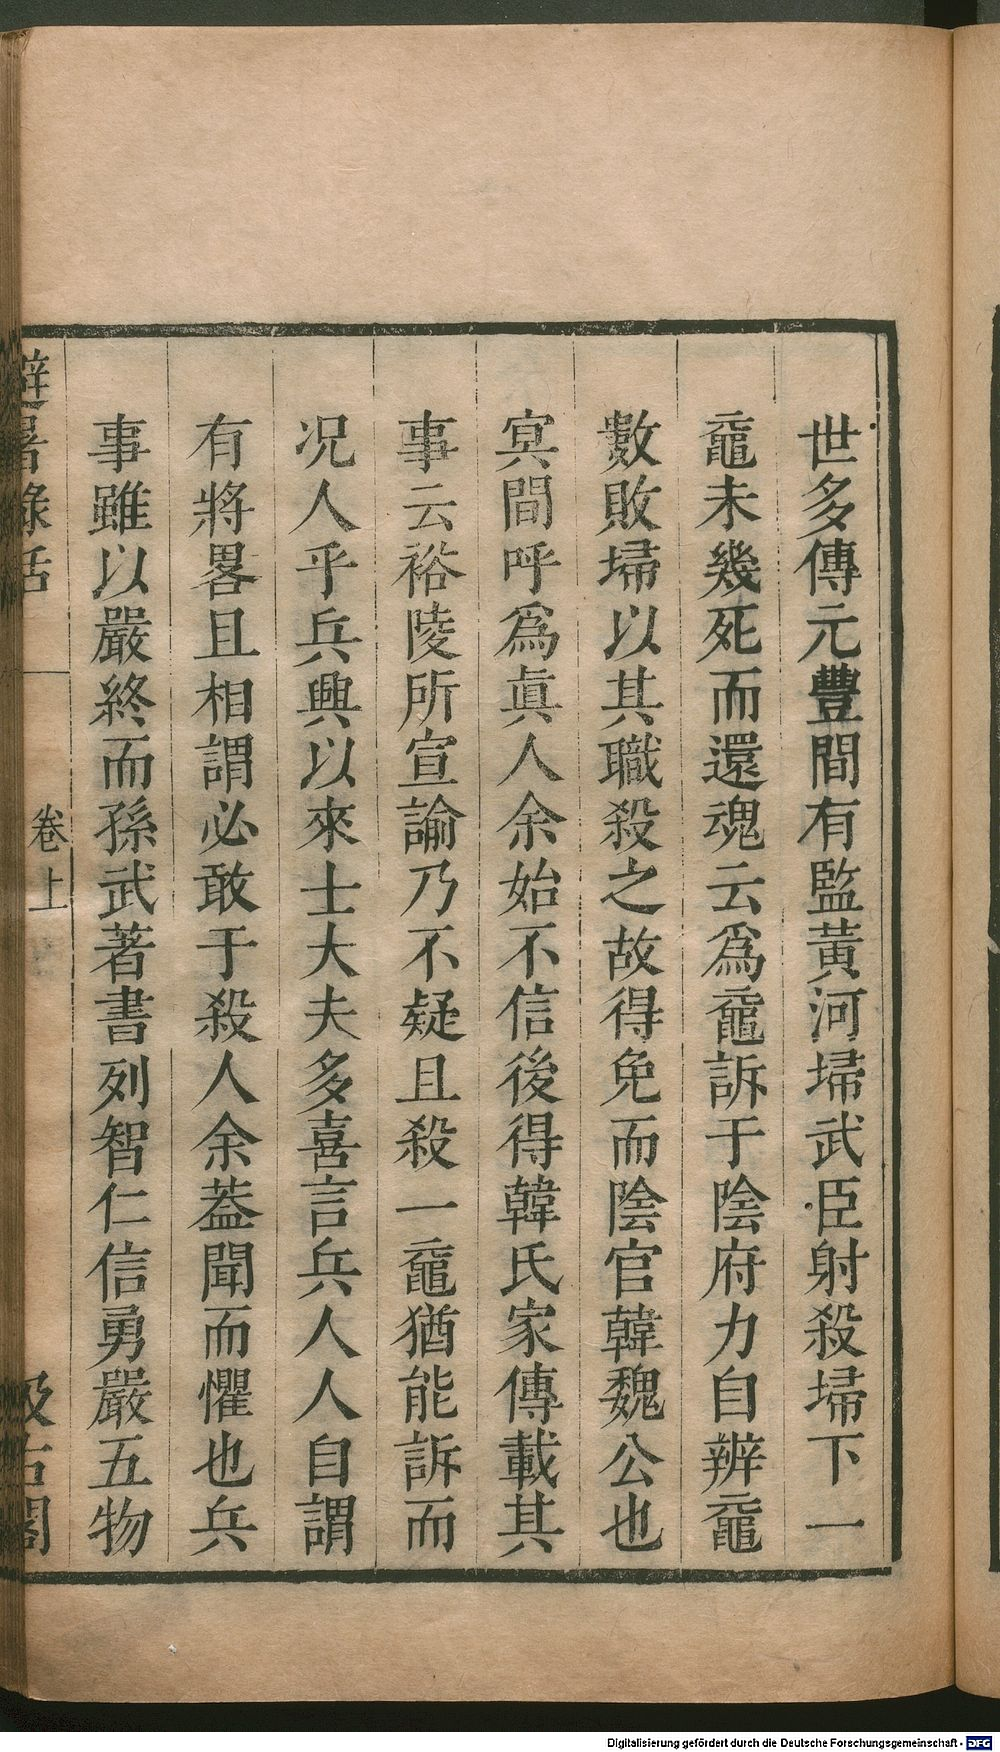 世多傳元豐間有監黃河埽武臣射殺埽下一
黿未幾死而還魂云爲黿訴于陰府力自辨黿
數敗埽以其職殺之故得免而陰官韓魏公也
冥間呼爲眞人余始不信後得韓氏家傳載其
事云裕陵所宣諭乃不疑且殺一黿猶能訴而
况人乎兵興以來士大夫多喜言兵人人自謂
有將畧且相謂必敢于殺人余葢聞而懼也兵
事雖以嚴終而孫武著書列智仁信勇嚴五物
避暑錄話
卷上
汲古閣
Digitalisierung gefördert durch die Deutsche Forschungsgemeinschaft - DFG